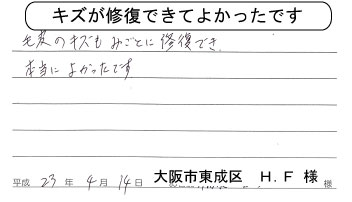 キズが修復できてよかったです
毛皮のキズもみごとに修復でき
本当によかったです
平成 23 年 4月 14日 大阪市東成区 H.F 様 様